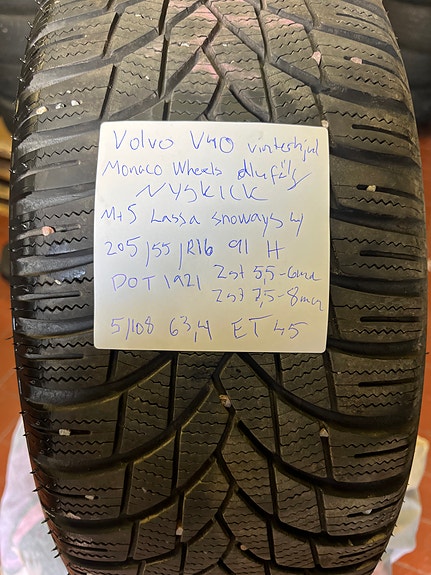 Volvo V40 vinterhjul
Monaco Wheels alufälg
NYSKICK
M+S Lassa snoways 4
205/55/R16 91 H
DOT 1921 2st 5,5-6mm
2st 7,5-8mm
5/108 63,4 ET 45